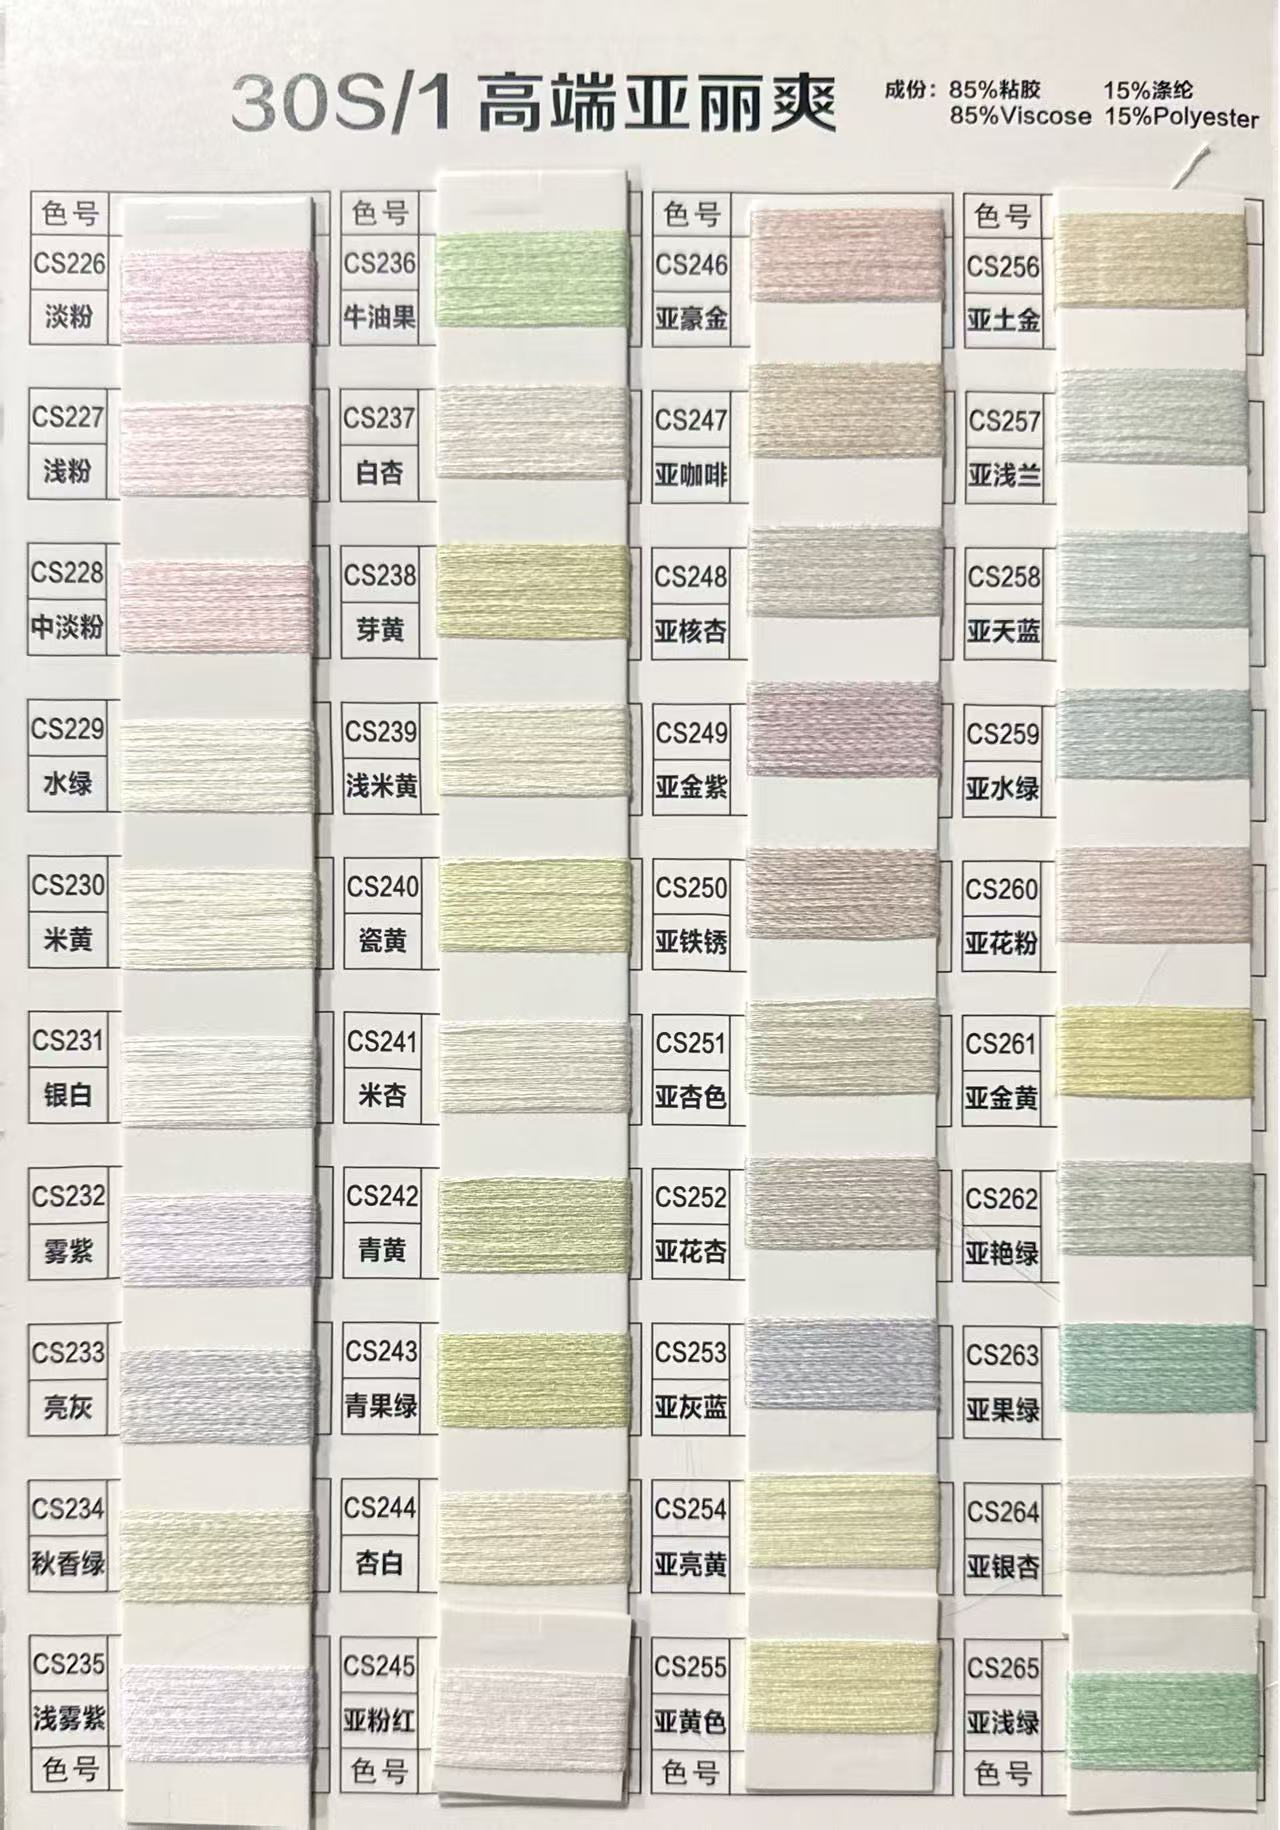 30S/1 高端亚丽爽
成份：85%粘胶 15%涤纶
85%Viscose 15%Polyester
色号
CS226
淡粉
CS227
浅粉
CS228
中淡粉
CS229
水绿
CS230
米黄
CS231
银白
CS232
雾紫
CS233
亮灰
CS234
秋香绿
CS235
浅雾紫
色号
色号
CS236
牛油果
CS237
白杏
CS238
芽黄
CS239
浅米黄
CS240
瓷黄
CS241
米杏
CS242
青黄
CS243
青果绿
CS244
杏白
CS245
亚粉红
色号
色号
CS246
亚豪金
CS247
亚咖啡
CS248
亚核杏
CS249
亚金紫
CS250
亚铁锈
CS251
亚杏色
CS252
亚花杏
CS253
亚灰蓝
CS254
亚亮黄
CS255
亚黄色
色号
色号
CS256
亚土金
CS257
亚浅兰
CS258
亚天蓝
CS259
亚水绿
CS260
亚花粉
CS261
亚金黄
CS262
亚艳绿
CS263
亚果绿
CS264
亚银杏
CS265
亚浅绿
色号